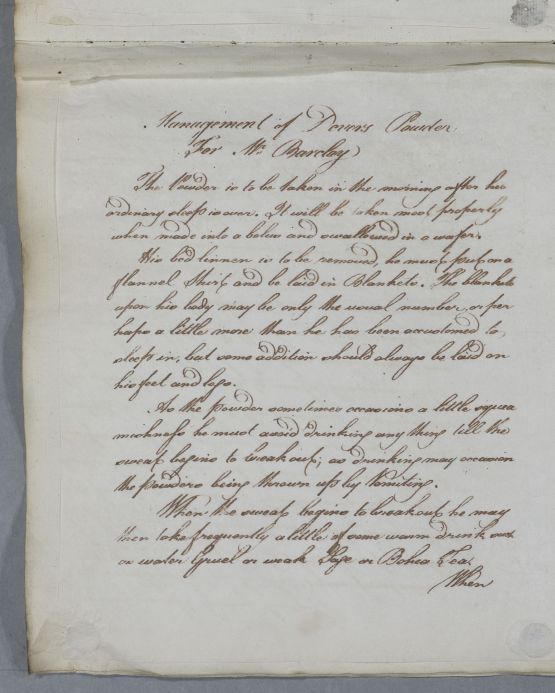 Management of Dovers Powder
For Mr. Barclay
The Powder is to be taken in the morning after his
ordinary sleep is over. It will be taken most properly
when made into a bolus and swallowed in a wafer.
His bed linnen is to be removed, he must put on a
flannel Shirt and be laid in Blankets. The blankets
upon his body may be only the usual number, or per
haps a little more than he has been accustomed to
sleep in; but some addition should always be laid on
his feet and legs.
As the powder sometimes occasions a little squea
mishness he must avoid drinking any thing till the
sweat begins to break out; as drinking may occasion
the powders being thrown up by Vomiting.
When the sweat begins to break out he may
then take frequently a little of some warm drink such
as water Gruel or weak Sage or Bohea Tea.
When